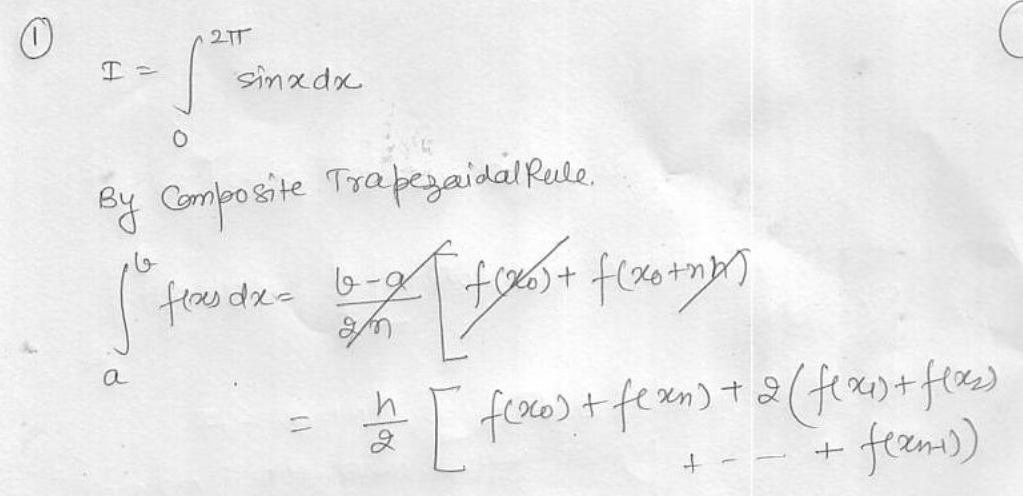 ①
I = ∫₀^2π sinx dx
By Composite Trapezaidal Rule.
∫ₐ^b f(x) dx = b-a/2n [ f(x₀) + f(x₀+nh)
= h/2 [ f(x₀) + f(xₙ) + 2(f(x₁) + f(x₂)
+ - - + f(xₙ₋₁))